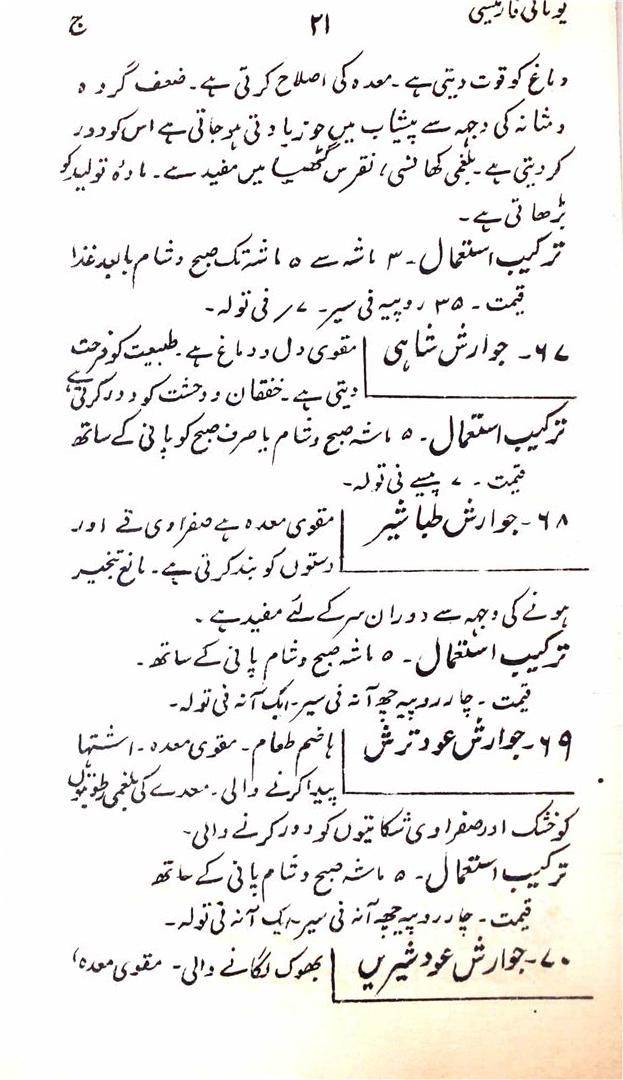 یونانی فارمیسی
۲۱
ج
دماغ کو قوت دیتی ہے۔ معدہ کی اصلاح کرتی ہے۔ ضعف گردہ
و مثانہ کی وجہہ سے پیشاب میں جو زیادتی ہو جاتی ہے اس کو دور
کر دیتی ہے۔ بلغمی کھانسی، نقرس گٹھیا میں مفید ہے۔ مادۂ تولید کو
بڑھاتی ہے۔
ترکیب استعمال۔ ۳ ماشہ سے ۵ ماشہ تک صبح و شام یا بعد غذا
قیمت۔ ۳۵ روپیہ فی سیر۔ ۷؍ فی تولہ۔
۶۷۔ جوارش شاہی
مقوی دل و دماغ ہے۔ طبیعت کو فرحت
دیتی ہے۔ خفقان و وحشت کو دور کرتی ہے
ترکیب استعمال۔ ۵ ماشہ صبح و شام یا صرف صبح کو پانی کے ساتھ
قیمت۔ ۷ پیسے فی تولہ۔
۶۸۔ جوارش طباشیر
مقوی معدہ ہے صفراوی قے اور
دستوں کو بند کرتی ہے۔ مانع تبخیر
ہونے کی وجہہ سے دوران سر کے لئے مفید ہے۔
ترکیب استعمال۔ ۵ ماشہ صبح و شام پانی کے ساتھ۔
قیمت۔ چار روپیہ چھ آنہ فی سیر۔ ایک آنہ فی تولہ۔
۶۹۔ جوارش عود ترش
ہاضم طعام۔ مقوی معدہ۔ اشتہا
پیدا کرنے والی۔ معدے کی بلغمی رطوبتوں
کو خشک اور صفراوی شکایتوں کو دور کرنے والی۔
ترکیب استعمال۔ ۵ ماشہ صبح و شام پانی کے ساتھ
قیمت۔ چار روپیہ چھ آنہ فی سیر۔ ایک آنہ فی تولہ۔
۷۰۔ جوارش عود شیریں
بھوک لگانے والی۔ مقوی معدہ،